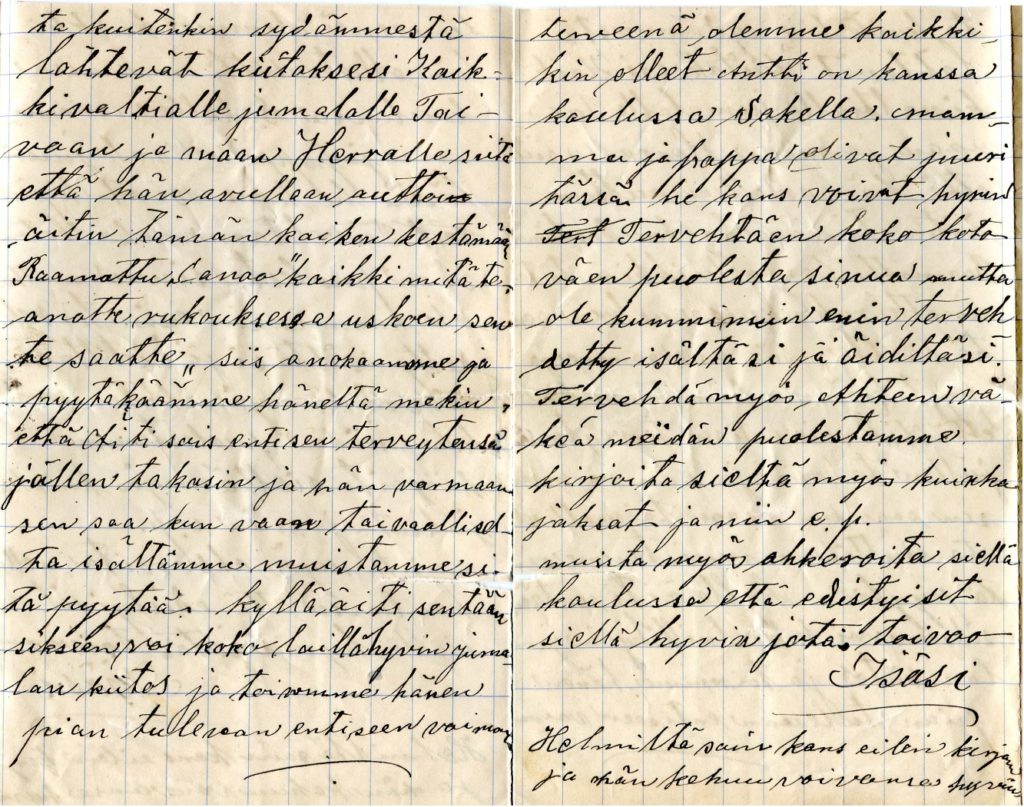 ta kuitenkin sydämmestä
lähtevät kiitoksesi Kaik-
kivaltialle jumalalle Tai-
vaan ja maan Herralle siitä
että hän avullaan auttoi
äitin tämän kaiken kestämään
Raamattu Sanoo "kaikki mitä te
anotte rukouksessa uskoen sen
te saatte„ siis anokaamme ja
pyytäkäämme häneltä mekin,
että Äiti sais entisen terveytensä
jällen takasin ja hän varmaan
sen saa kun vaan taivaallisel-
ta isältämme muistamme si-
tä pyytää. kyllä äiti sentään
sikseen voi koko laillahyvin juma-
lan kiitos ja toivomme hänen
pian tulevan entiseen voimaan
terveenä olemme kaikki-
kin olleet Antti on kanssa
koulussa Sakella. mam-
ma ja pappa olivat juuri
tässä he kans voivat hyvin
Tert Tervehtäen koko koto
väen puolesta sinua mutta
ole kumminiin enin terveh
detty isältäsi jä äidiltäsi.
Tervehdä myös Ahteen vä-
keä meidän puolestamme.
kirjoita sieltä myös kuinka
jaksat ja niin e. p.
muista myös ahkeroita siellä
koulussa että edistyisit
siellä hyvin jota toivoo
Isäsi
Helmiltä sain kans eilen kirjan
ja hän kehuu voivansa hyvin